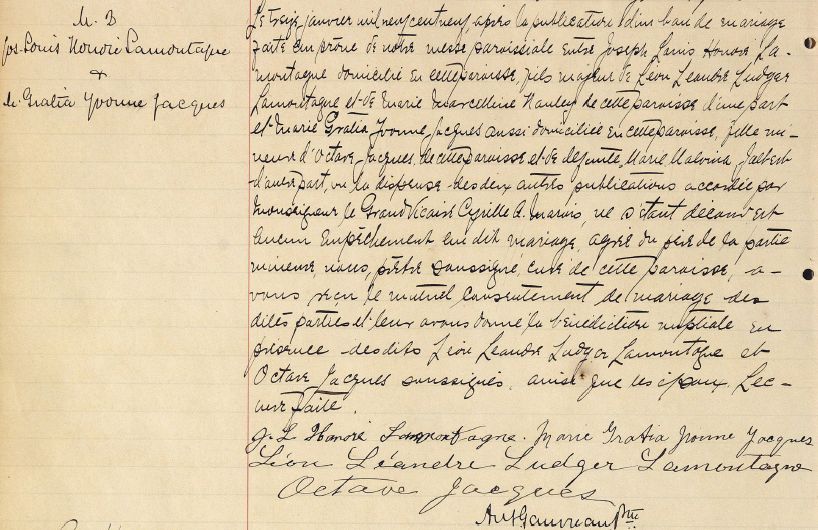 M. 3
Jos-Louis Honoré Lamontagne
+
M. Gratia Yvonne Jacques
Le treize janvier mil neuf cent neuf, après la publication d'un ban de mariage
faite au prône de notre messe paroissiale entre Joseph Louis Honoré La-
montagne domicilié en cette paroisse, fils majeur de Léon Leandre Ludger
Lamontagne et de Marie Marcelline Nauley de cette paroisse d'une part
et Marie Gratia Yvonne Jacques aussi domiciliée en cette paroisse, fille mi-
neure d'Octave Jacques, de cette paroisse et de défunte Marie Malvina Jalbert
d'autre part, vu la dispense des deux autres publications accordée par
Monseigneur le Grand Vicaire Cyrille A. Marois, ne s'étant découvert
aucun empêchement au dit mariage, agréé du père de la partie
mineure, nous, prêtre soussigné, curé de cette paroisse, a-
vons reçu le mutuel consentement de mariage des
dites parties et leur avons donné la bénédiction nuptiale en
présence desdits Léon Leandre Ludger Lamontagne et
Octave Jacques soussignés, ainsi que les époux. Lec-
ture faite.
J. L Honoré Lamontagne. Marie Gratia Yvonne Jacques
Léon Léandre Ludger Lamontagne
Octave Jacques
Ant Gauvreau Ptre